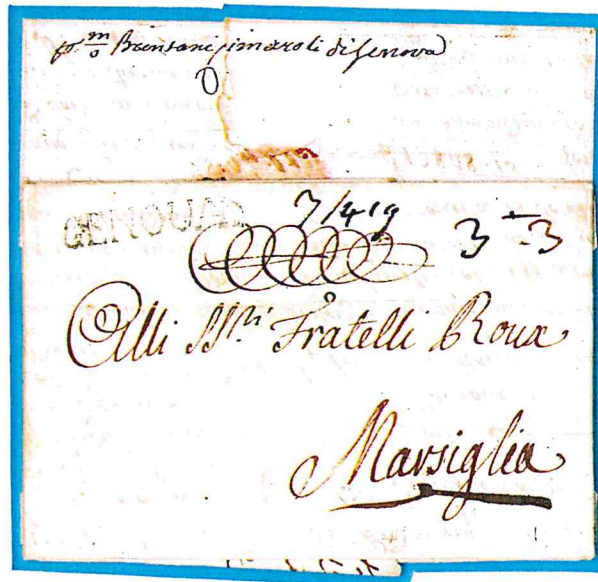 p m/o Brentani, imaroli di Genova
GENOUA
7/4 19
3 - 3
Alli SS.ri Fratelli Roux
Marsiglia